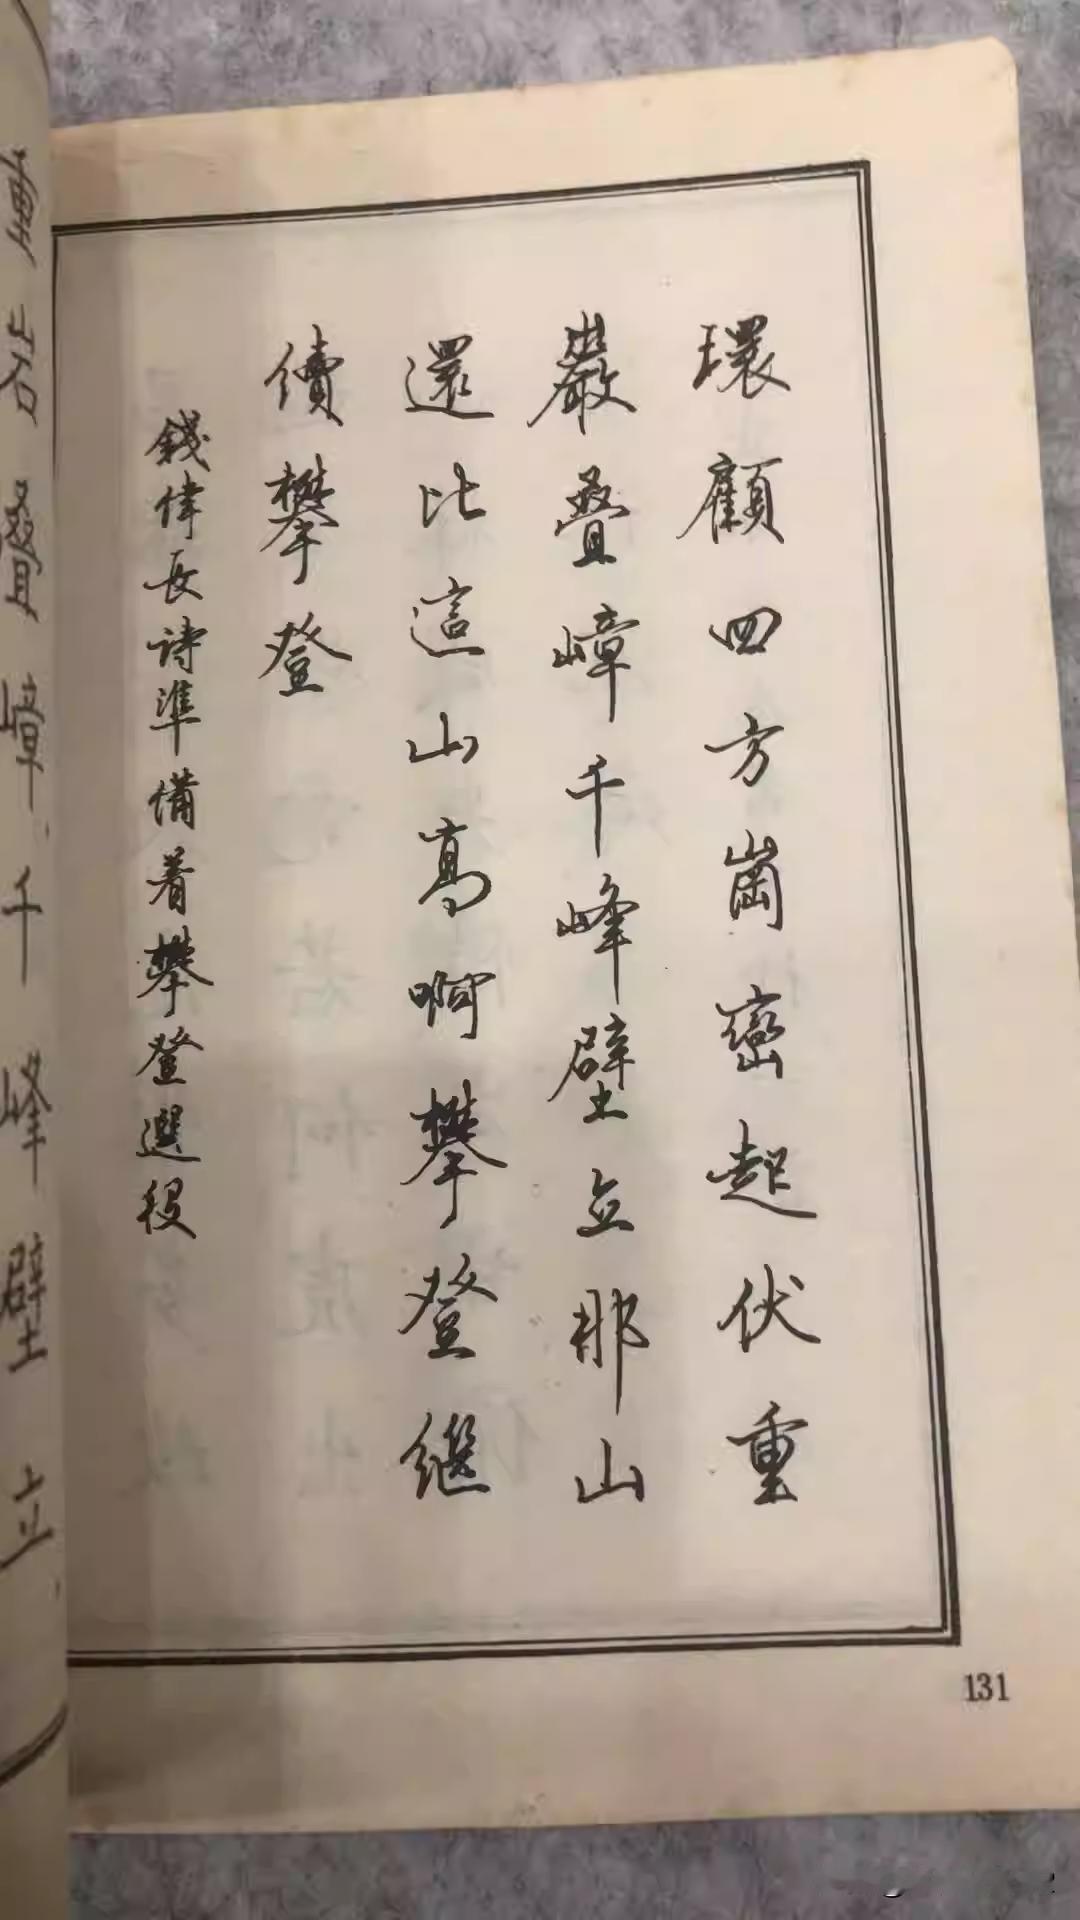 環顧四方崗巒起伏重
巖叠嶂千峰壁立那山
還比這山高啊攀登繼
續攀登
錢偉長詩準備着攀登選段
131
重岩叠嶂千峰壁立